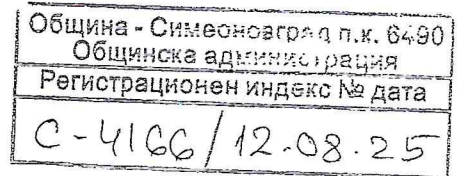 Община - Симеоновград п.к. 6490
Общинска администрация
Регистрационен индекс № дата
С-4166/12.08.25